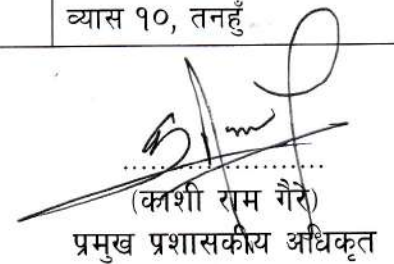 व्यास १०, तनहुँ
(काशी राम गैरे)
प्रमुख प्रशासकीय अधिकृत